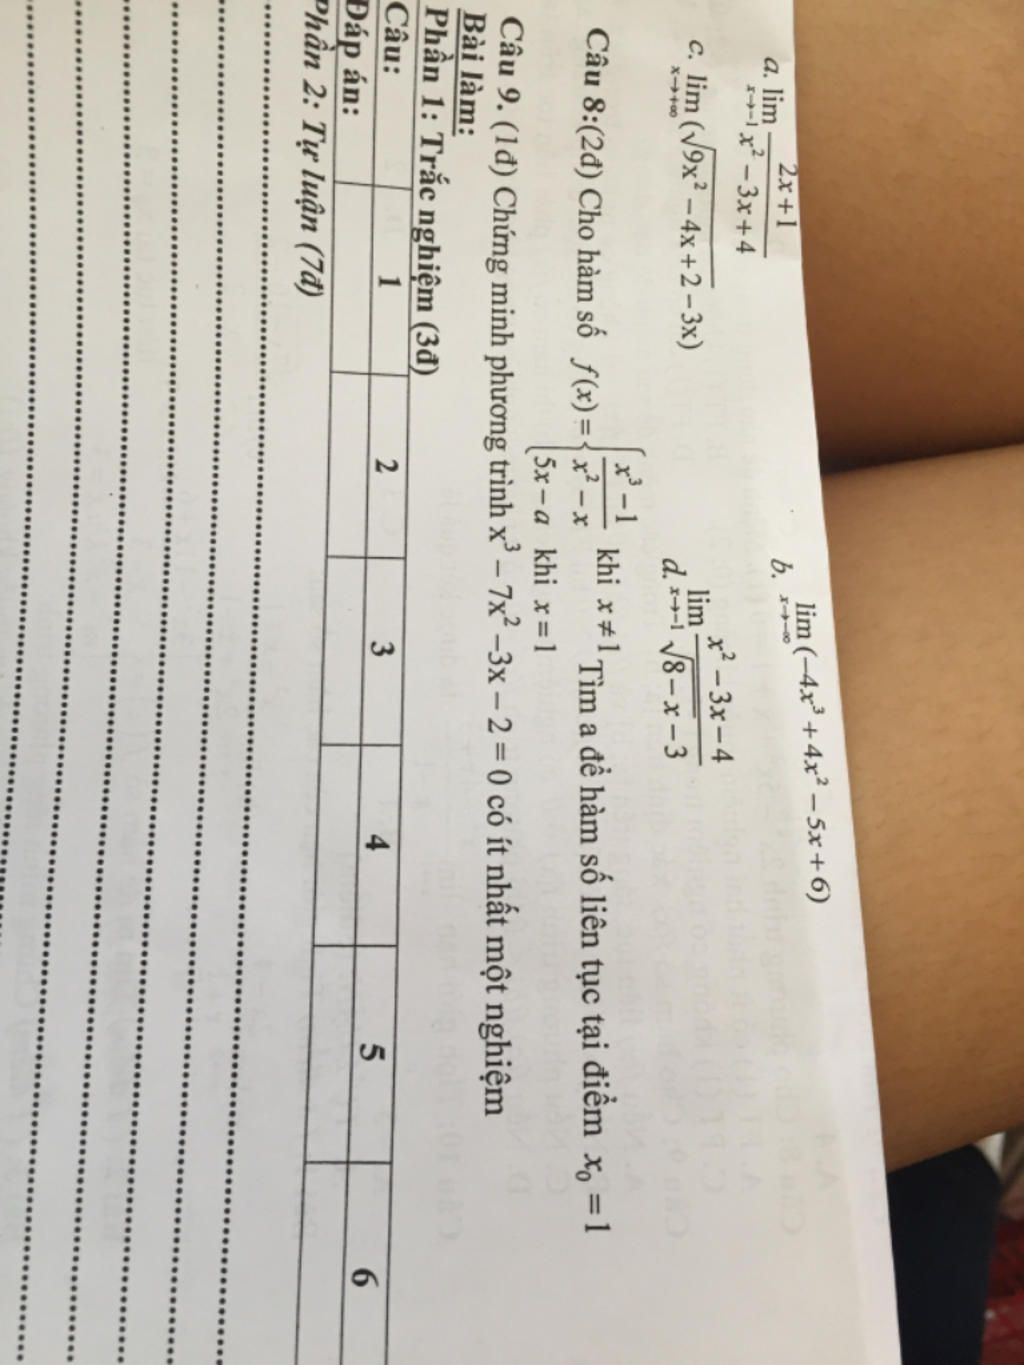 a. lim x→-1 (2x+1)/(x² − 3x + 4)
b. lim x→-∞ (−4x³ + 4x² − 5x + 6)
c. lim x→+∞ (√(9x² − 4x + 2) − 3x)
d. lim x→-1 (x² − 3x − 4)/(√(8 − x) − 3)
Câu 8:(2đ) Cho hàm số f(x) = { (x³ − 1)/(x² − x) khi x ≠ 1
5x − a khi x = 1
Tìm a để hàm số liên tục tại điểm x₀ = 1
Câu 9. (1đ) Chứng minh phương trình x³ – 7x² –3x – 2 = 0 có ít nhất một nghiệm
Bài làm:
Phần 1: Trắc nghiệm (3đ)
Câu: 1 2 3 4 5 6
Đáp án:
Phần 2: Tự luận (7đ)